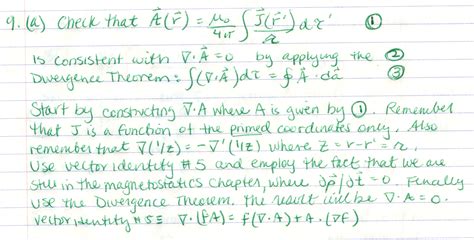 9. (a) Check that A⃗(r⃗) = μ₀/4π ∫ J⃗(r⃗')/𝓇 dτ' ①
is consistent with ∇·A⃗ = 0 by applying the ②
Divergence Theorem: ∫(∇·A⃗)dτ = ∮A⃗·da⃗ ③
Start by constructing ∇·A where A is given by ①. Remember
that J is a function of the primed coordinates only. Also
remember that ∇(1/z) = -∇'(1/z) where z = r-r' = 𝓇,
Use vector identity #5 and employ the fact that we are
still in the magnetostatics chapter, where ∂ρ/∂t = 0. Finally
use the Divergence Theorem. the result will be ∇·A = 0.
vector identity #5 ≡ ∇·(fA) = f(∇·A) + A·(∇f)